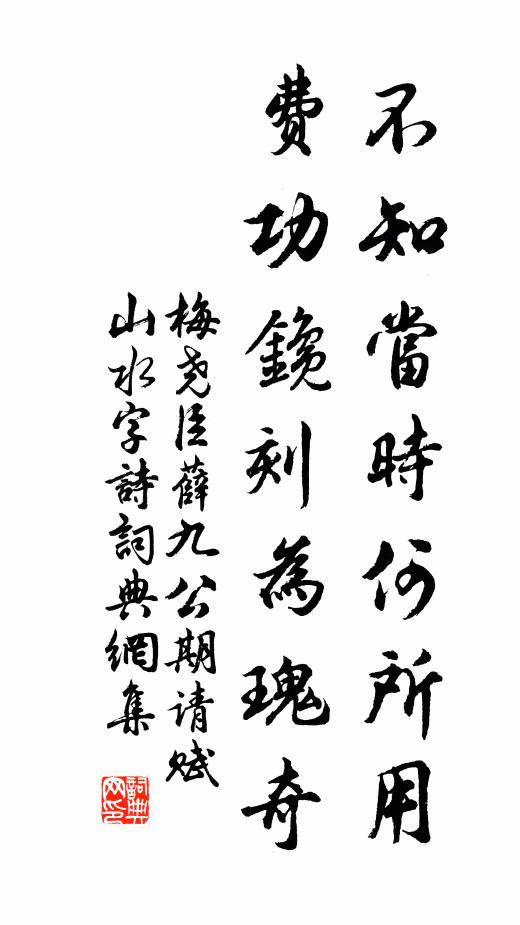 不知當時何所用
費功鑱刻為瑰奇
梅尧臣薛九公期请赋
山水字詩詞典網集
詞典網印